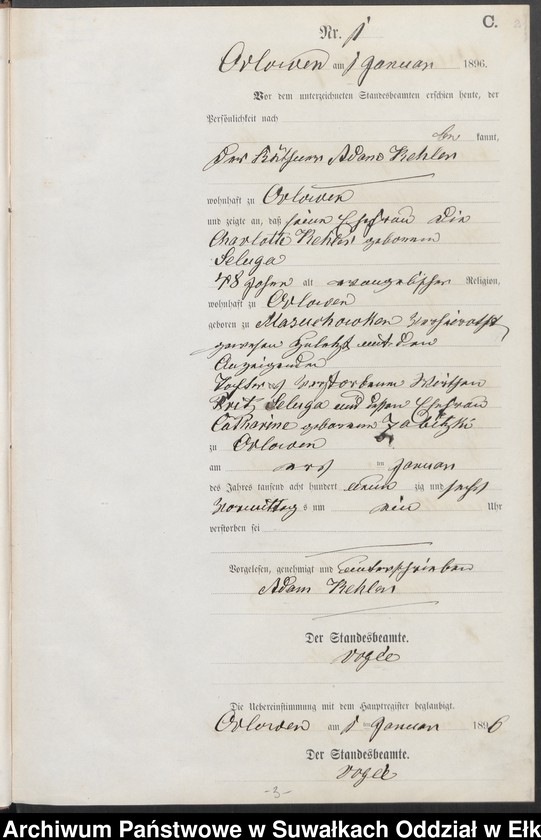 C.
Nr. 1
Orlowen am 1 Januar 1896.
Vor dem unterzeichneten Standesbeamten erschien heute, der
Persönlichkeit nach
be kannt,
der Käthner Adam Kehler
wohnhaft zu Orlowen
und zeigte an, daß seine Ehefrau die
Charlotte Kehler geborene
Seluga
78 Jahre alt evangelischer Religion,
wohnhaft zu Orlowen
geboren zu Masuchowken verheirathet
gewesen zuletzt mit dem
Anzeigenden
Tochter des verstorbenen Wirthen
Fritz Seluga und dessen Ehefrau
Catharine geborenen Zabitzki
zu Orlowen
am ersten Januar
des Jahres tausend acht hundert neun zig und sechs
Vormittag s um ein Uhr
verstorben sei
Vorgelesen, genehmigt und unterschrieben
Adam Kehler
Der Standesbeamte.
Vogée
Die Uebereinstimmung mit dem Hauptregister beglaubigt.
Orlowen am 1 Januar 1896
Der Standesbeamte.
Vogée
-3-
Archiwum Państwowe w Suwałkach Oddział w Ełk